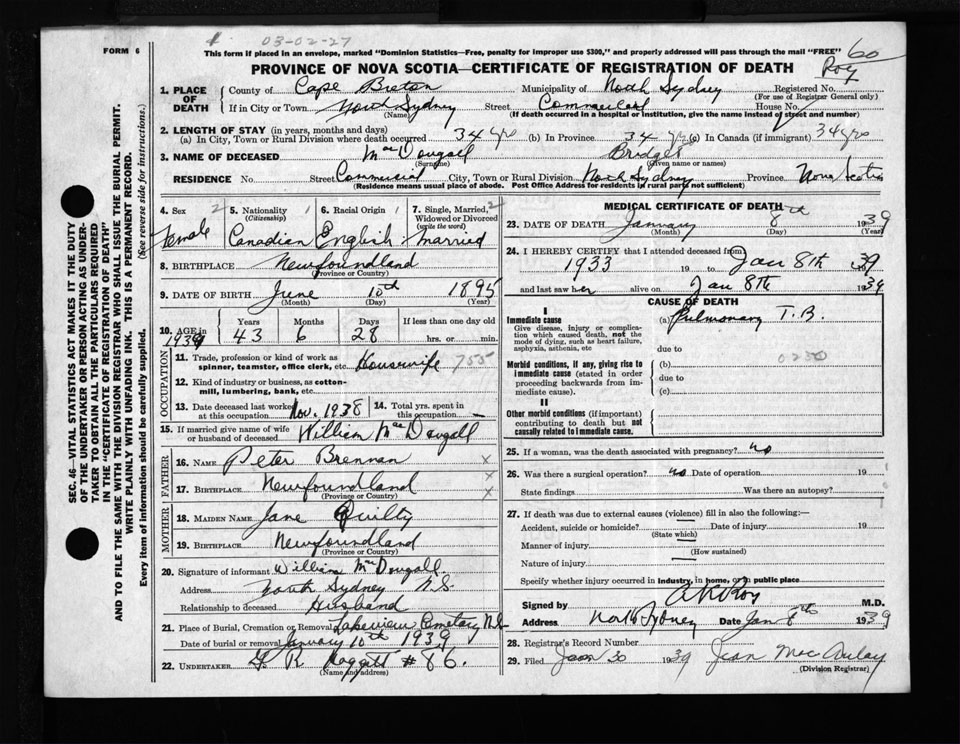 03-02-27
FORM 6
This form if placed in an envelope, marked "Dominion Statistics—Free, penalty for improper use $300," and properly addressed will pass through the mail "FREE"
60
Roy
PROVINCE OF NOVA SCOTIA—CERTIFICATE OF REGISTRATION OF DEATH
SEC. 46—VITAL STATISTICS ACT MAKES IT THE DUTY
OF THE UNDERTAKER OR PERSON ACTING AS UNDER-
TAKER TO OBTAIN ALL THE PARTICULARS REQUIRED
IN THE "CERTIFICATE OF REGISTRATION OF DEATH"
AND TO FILE THE SAME WITH THE DIVISION REGISTRAR WHO SHALL ISSUE THE BURIAL PERMIT.
WRITE PLAINLY WITH UNFADING INK. THIS IS A PERMANENT RECORD.
Every item of information should be carefully supplied. (See reverse side for instructions.)
1. PLACE OF DEATH County of Cape Breton Municipality of North Sydney Registered No.
(For use of Registrar General only)
If in City or Town North Sydney Street Commercial House No.
(Name) (If death occurred in a hospital or institution, give the name instead of street and number)
2. LENGTH OF STAY (in years, months and days)
(a) In City, Town or Rural Division where death occurred 34 yrs (b) In Province 34 yrs (c) In Canada (if immigrant) 34 yrs
3. NAME OF DECEASED MacDougall Bridget
(Surname) (Given name or names)
RESIDENCE No. Street Commercial City, Town or Rural Division North Sydney Province Nova Scotia
(Residence means usual place of abode. Post Office Address for residents in rural parts not sufficient)
4. Sex 2 Female
5. Nationality (Citizenship) 1 Canadian
6. Racial Origin 1 English
7. Single, Married, Widowed or Divorced (write the word) 2 Married
8. BIRTHPLACE Newfoundland
(Province or Country)
9. DATE OF BIRTH June 10th 1895
(Month) (Day) (Year)
10. AGE in 1939 Years Months Days If less than one day old
43 6 28 hrs. or min.
OCCUPATION
11. Trade, profession or kind of work as
spinner, teamster, office clerk, etc. Housewife 755
12. Kind of industry or business, as cotton-
mill, lumbering, bank, etc.
13. Date deceased last worked at this occupation Nov. 1938 14. Total yrs. spent in this occupation
15. If married give name of wife or husband of deceased William MacDougall
FATHER
16. NAME Peter Brennan x
17. BIRTHPLACE Newfoundland x
(Province or Country) x
MOTHER
18. MAIDEN NAME Jane Quilty
19. BIRTHPLACE Newfoundland
(Province or Country)
20. Signature of informant William McDougall
Address North Sydney N.S.
Relationship to deceased Husband
21. Place of Burial, Cremation or Removal Lakeview Cemetary N.S
Date of burial or removal January 10th 1939
22. UNDERTAKER #86.
(Name and address)
MEDICAL CERTIFICATE OF DEATH
23. DATE OF DEATH January 8th 1939
(Month) (Day) (Year)
24. I HEREBY CERTIFY that I attended deceased from
1933 19 to Jan 8th 1939
and last saw her alive on Jan 8th 1939
CAUSE OF DEATH
I
Immediate cause (a) Pulmonary T.B.
Give disease, injury or complica-
tion which caused death, not the
mode of dying, such as heart failure,
asphyxia, asthenia, etc due to
Morbid conditions, if any, giving rise to (b)
immediate cause (stated in order due to
proceeding backwards from im-
mediate cause). (c)
II
Other morbid conditions (if important)
contributing to death but not
causally related to immediate cause.
25. If a woman, was the death associated with pregnancy? no
26. Was there a surgical operation? no Date of operation 19
State findings Was there an autopsy?
27. If death was due to external causes (violence) fill in also the following:—
Accident, suicide or homicide? Date of injury 19
(State which)
Manner of injury
(How sustained)
Nature of injury
Specify whether injury occurred in industry, in home, or in public place
Signed by A K Roy M.D.
Address North Sydney Date Jan 8th 1939
28. Registrar's Record Number
29. Filed Jan 30 1939 Jean MacAulay
(Division Registrar)